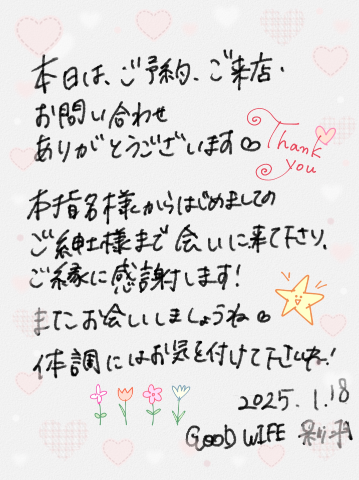 本日は、ご予約、ご来店・
お問い合わせ
ありがとうございます
Thank
you
本指名様からはじめましての
ご紳士様まで会いに来て下さり、
ご縁に感謝します!
またお会いしましょうね
体調にはお気を付けて下さいね!
2025.1.18
GOOD WIFE